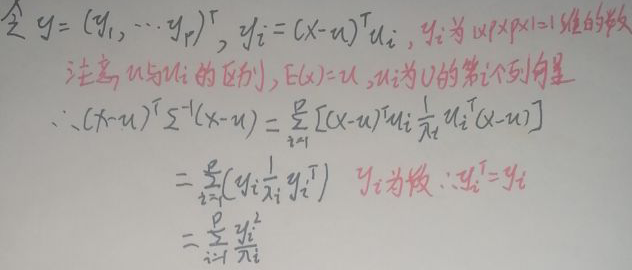 令 y = (y₁, ⋯ yₚ)ᵀ, yᵢ = (x-u)ᵀuᵢ, yᵢ为1×p×p×1=1维的数
注意, u与uᵢ的区别, E(x)=u, uᵢ为U的第i个列向量
∴(x-u)ᵀΣ⁻¹(x-u) = Σᵢ₌₁ᵖ [(x-u)ᵀuᵢ 1/λᵢ uᵢᵀ(x-u)]
= Σᵢ₌₁ᵖ(yᵢ 1/λᵢ yᵢᵀ) yᵢ为数 ∴yᵢᵀ=yᵢ
= Σᵢ₌₁ᵖ yᵢ²/λᵢ